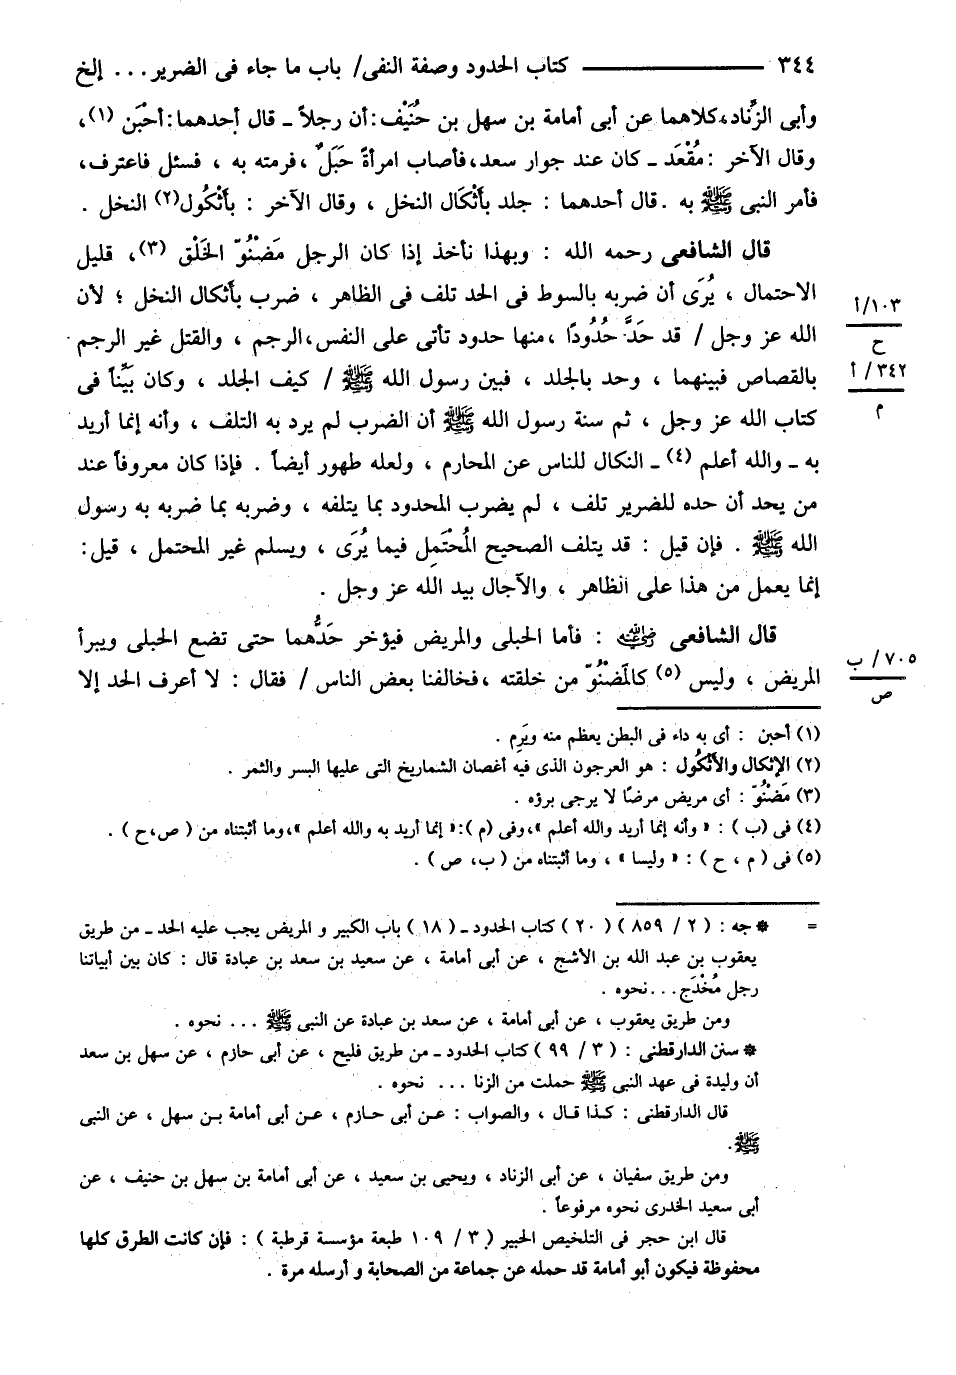 ٣٤٤ ــــــــــــــــ كتاب الحدود وصفة النفى/ باب ما جاء فى الضرير... إلخ
وأبى الزِّناد،كلاهما عن أبى أمامة بن سهل بن حُنَيْف:أن رجلاً ـ قال أحدهما:أحْبَن (١)،
وقال الآخر :مُقْعَد ـ كان عند جوار سعد،فأصاب امرأةً حَبَلٌ ،فرمته به ، فسئل فاعترف،
فأمر النبى ﷺ به .قال أحدهما : جلد بأَثْكَال النخل ، وقال الآخر : بأَثْكُول(٢) النخل .
قال الشافعى رحمه الله : وبهذا نأخذ إذا كان الرجل مَضْنُوّ الخَلْق (٣)، قليل
الاحتمال ، يُرَى أن ضربه بالسوط فى الحد تلف فى الظاهر ، ضرب بأثكال النخل ؛ لأن
الله عز وجل / قد حَدَّ حُدُودًا ،منها حدود تأتى على النفس،الرجم ، والقتل غير الرجم
بالقصاص فبينهما ، وحد بالجلد ، فبين رسول الله ﷺ / كيف الجلد ، وكان بَيِّناً فى
كتاب الله عز وجل ، ثم سنة رسول الله ﷺ أن الضرب لم يرد به التلف ، وأنه إنما أريد
به ـ والله أعلم (٤)ـ النكال للناس عن المحارم ، ولعله طهور أيضاً . فإذا كان معروفاً عند
من يحد أن حده للضرير تلف ، لم يضرب المحدود بما يتلفه ، وضربه بما ضربه به رسول
الله ﷺ . فإن قيل : قد يتلف الصحيح المُحْتَمِل فيما يُرَى ، ويسلم غير المحتمل ، قيل:
إنما يعمل من هذا على الظاهر ، والآجال بيد الله عز وجل .
قال الشافعى رضي الله عنه : فأما الحبلى والمريض فيؤخر حَدُّهما حتى تضع الحبلى ويبرأ
المريض ، وليس (٥) كالمَضْنُوّ من خلقته ،فخالفنا بعض الناس / فقال : لا أعرف الحد إلا
١٠٣/أ
ح
٣٤٢/ أ
م
٧٠٥/ ب
ص
(١) أحبن : أى به داء فى البطن يعظم منه ويَرِم .
(٢) الإثكال والأُثْكُول : هو العرجون الذى فيه أغصان الشماريخ التى عليها البسر والثمر .
(٣) مَضْنُوّ : أى مريض مرضًا لا يرجى برؤه .
(٤) فى (ب) : « وأنه إنما أريد والله أعلم »،وفى (م):« إنما أريد به والله أعلم »،وما أثبتناه من ( ص،ح ) .
(٥) فى ( م ، ح ) : « وليسا » ، وما أثبتناه من ( ب، ص ) .
= * جه : ( ٢ / ٨٥٩ ) ( ٢٠ ) كتاب الحدود ـ ( ١٨ ) باب الكبير و المريض يجب عليه الحد ـ من طريق
يعقوب بن عبد الله بن الأشج ، عن أبى أمامة ، عن سعيد بن سعد بن عبادة قال : كان بين أبياتنا
رجل مُخْدَج...نحوه .
ومن طريق يعقوب ، عن أبى أمامة ، عن سعد بن عبادة عن النبى ﷺ ... نحوه .
* سنن الدارقطنى : ( ٣ / ٩٩ ) كتاب الحدود ـ من طريق فليح ، عن أبى حازم ، عن سهل بن سعد
أن وليدة فى عهد النبى ﷺ حملت من الزنا ... نحوه .
قال الدارقطنى : كـذا قـال ، والصواب : عـن أبى حـازم ، عـن أبى أمامة بـن سهل ، عن النبى
ﷺ.
ومن طريق سفيان ، عن أبى الزناد ، ويحيى بن سعيد ، عن أبى أمامة بن سهل بن حنيف ، عن
أبى سعيد الخدرى نحوه مرفوعاً .
قال ابن حجر فى التلخيص الحبير (٣ / ١٠٩ طبعة مؤسسة قرطبة ) : فإن كانت الطرق كلها
محفوظة فيكون أبو أمامة قد حمله عن جماعة من الصحابة و أرسله مرة .